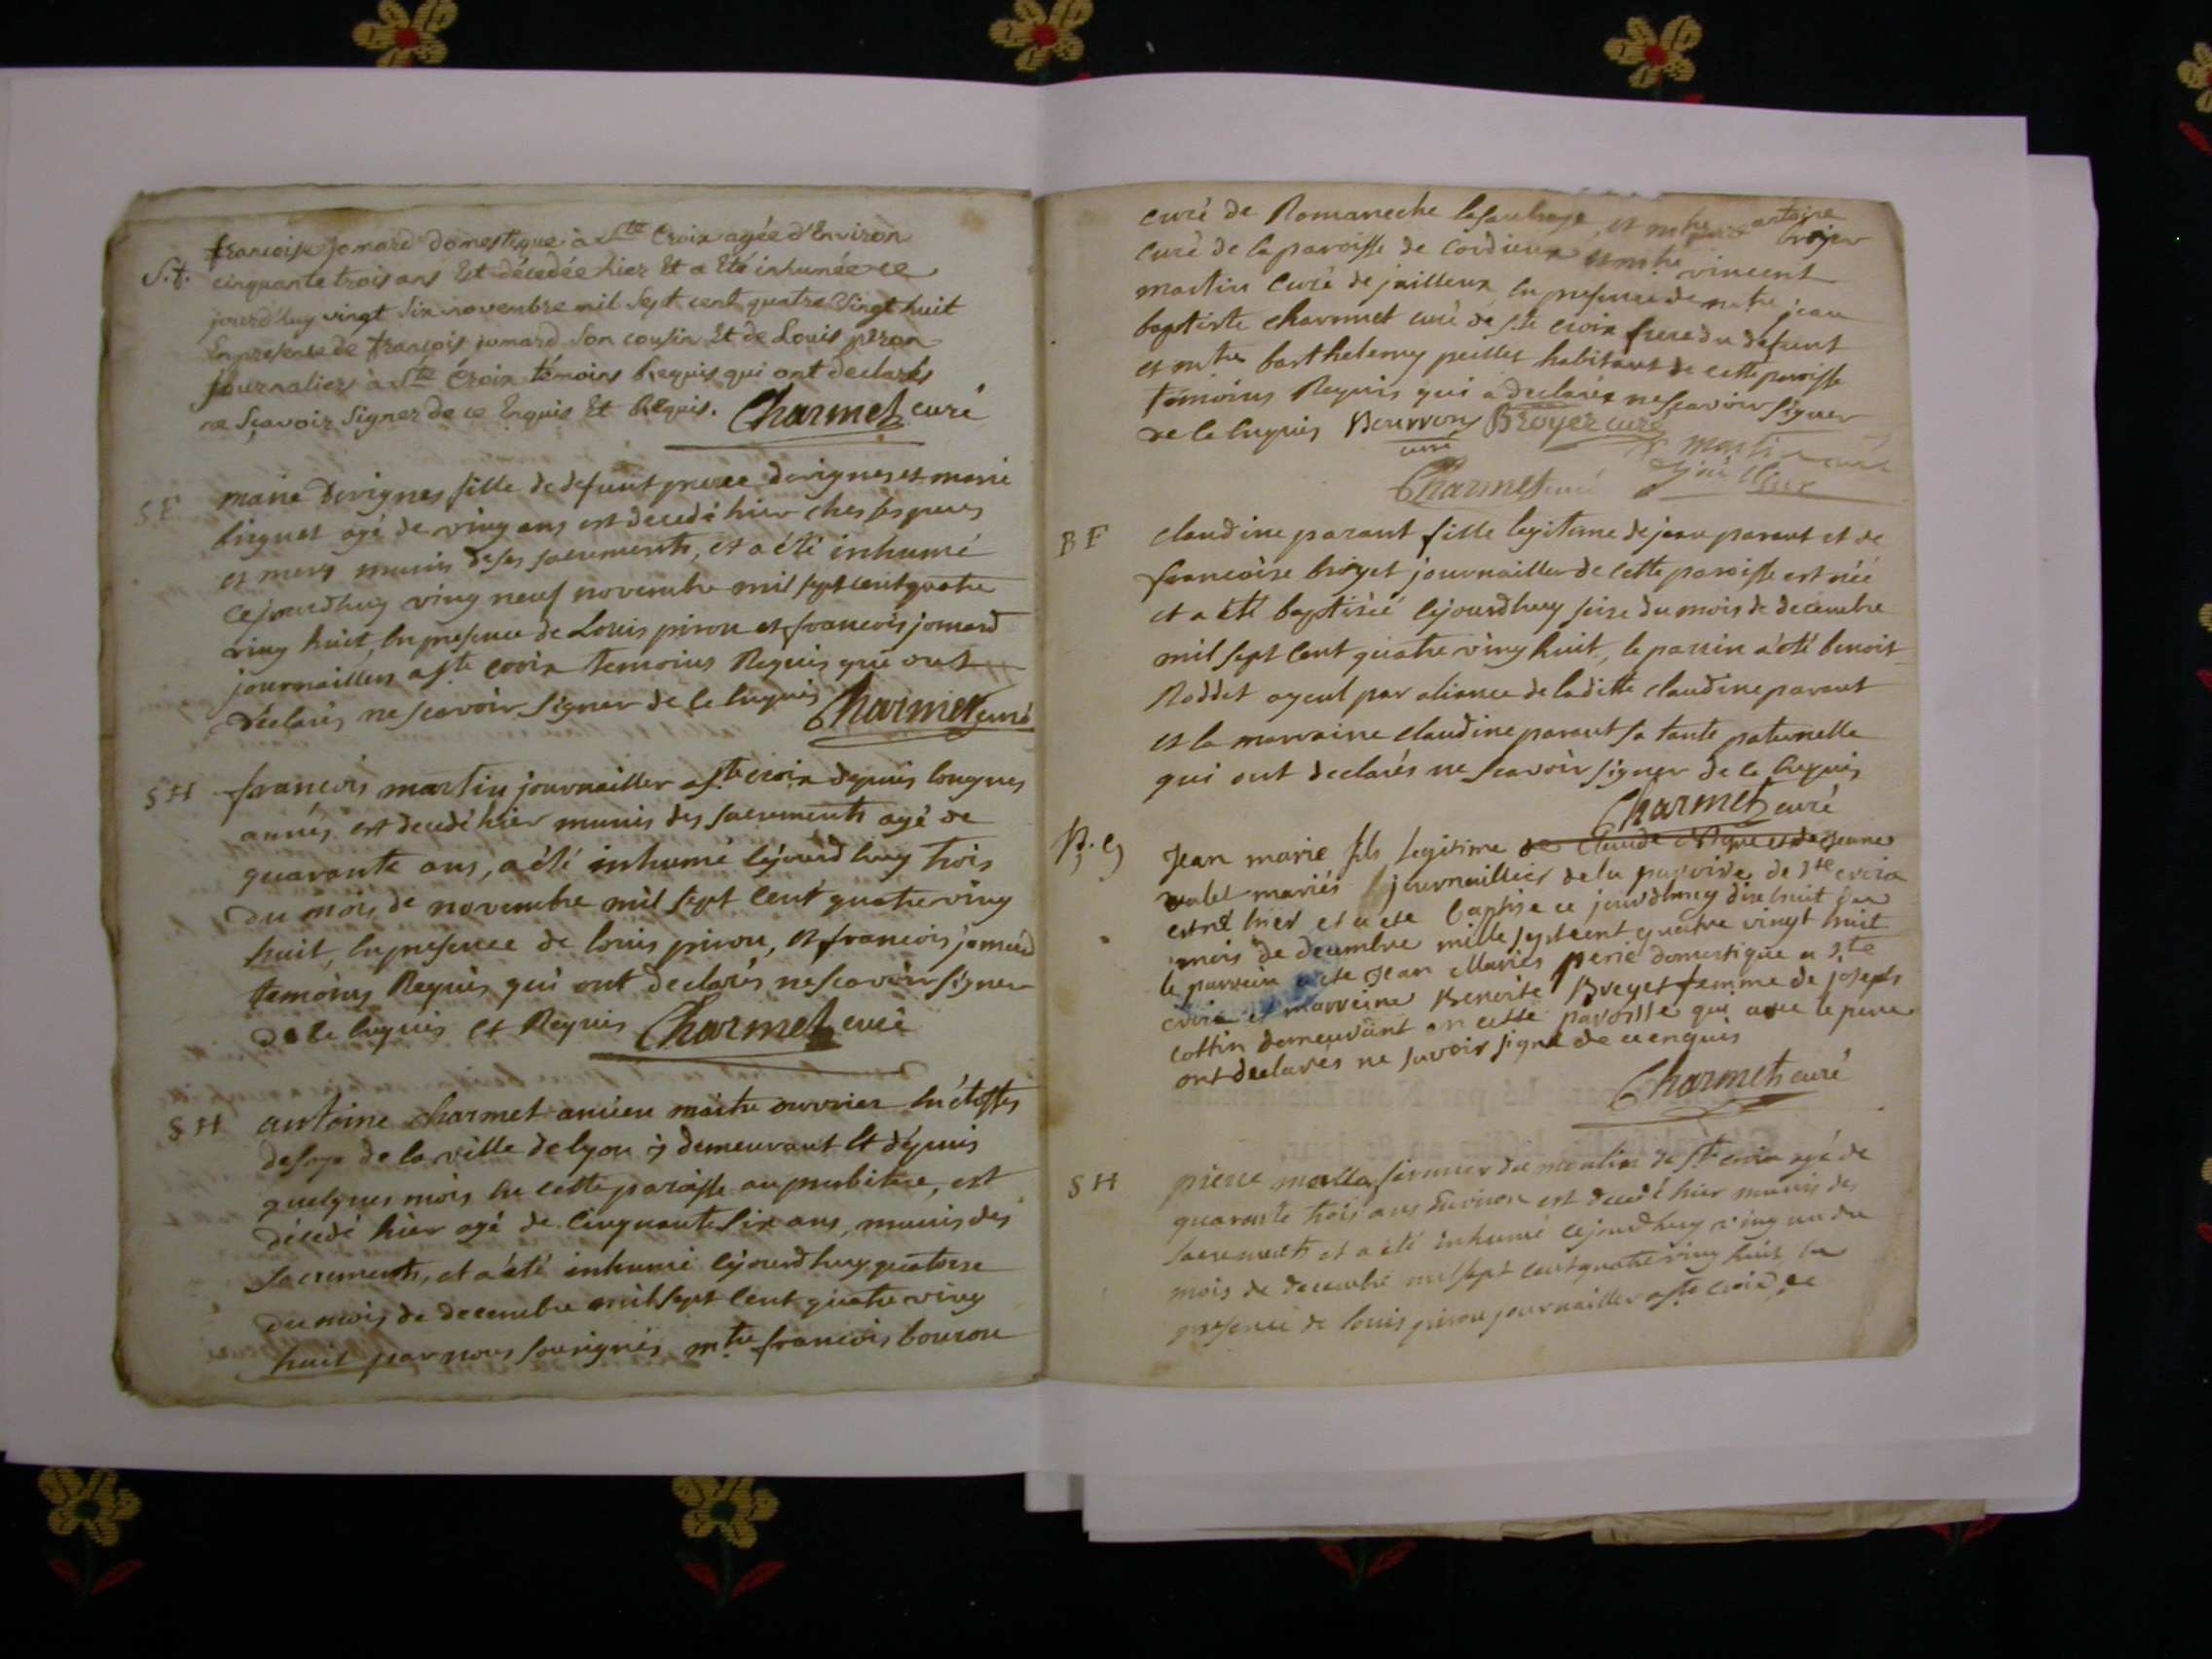 S.f. francoise jomard domestique à Ste Croix agée d'Environ
cinquante trois ans Est décédée hier Et a Eté inhumée ce
jourd'huy vingt six novembre mil Sept cent quatre Vingt huit
En presence de françois jomard Son cousin Et de Louis piron
journaliers à Ste Croix témoins Requis qui ont declarés
ne Sçavoir Signer de ce Enquis Et Requis. Charmet curé
SF marie Dévignes fille de defunt pierre devignes et marie
binguet agé de ving ans est decedé hier ches ses peres
et meres munis de ses sacrements, et a été inhumé
cejourdhuy ving neuf novembre mil sept cent quatre
ving huit, en presence de Louis piron et francois jomard
journaillers a ste croix temoins Requis qui ont
declarés ne scavoir signer de ce enquis Charmet curé
SH francois martin journailler a ste croix depuis longues
annés est decedé hier munis des sacrements agé de
quarante ans, a été inhumé cejourdhuy trois
du mois de novembre mil sept cent quatre ving
huit, en presence de louis piron, et francois jomard
temoins Requis qui ont declarés ne scavoir signer
de ce enquis et Requis Charmet curé
SH antoine Charmet ancien maitre ouvrier en étoffes
de soye de la ville de lyon y demeurant et depuis
quelques mois en cette paroisse au presbitere, est
décedé hier agé de cinquante six ans, munis des
sacrements, et a été inhumé cejourdhuy quatorse
du mois de decembre mil sept cent quatre ving
huit par nous sousignés mtre francois bouron
curé de Romaneche , et mtre antoine
broyer
curé de la paroisse de cordieux et mtre vincent
martin curé de jailleux en presence de mtre jean
baptiste charmet curé de ste croix frere du defunt
et mtre barthelemy peillet habitant de cette paroisse
temoins Requis qui a declarés ne scavoir signer
de ce enquis Bourron Broyer curé
curé martin curé
Charmet curé jailleux
BF Claudine parant fille legitime de jean parant et de
francoise broyet journailler de cette paroisse est née
et a été baptisée cejourdhuy seise du mois de decembre
mil sept cent quatre ving huit, le parrin a été benoit
Roddet ayeul par aliance de laditte claudine parant
et la marraine claudine parant sa tante paternelle
qui ont declarés ne scavoir signer de ce enquis
Charmet curé
Jean marie fils legitime de Claude et de Jeanne
mariés journaillier de la paroise de Ste croix
est né hier et a ete baptise ce jourdhuy dixhuit du
mois de decembre mille sept cent quatre vingt huit
le parrein a ete Jean Maries perié domestique a Ste
croix et marreine Benoite Breyet femme de joseph
cottin demeurant en cette paroisse qui avec le pere
ont declarés ne savoir signé de ce enquis
Charmet curé
SH pierre fermier du moulin de ste croix agé de
quarante trois ans environ est decedé hier munis des
sacrements et a été inhumé cejourdhuy ving un du
mois de decembre mil sept cent quatre ving huit en
presence de louis piron journailler a ste croix ce